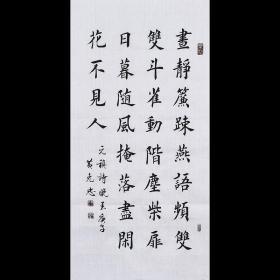 晝靜簾疎燕語頻雙
雙斗雀動階塵柴扉
日暮随風掩落盡閑
花不見人
元稹詩晚春庚子
黄光忠